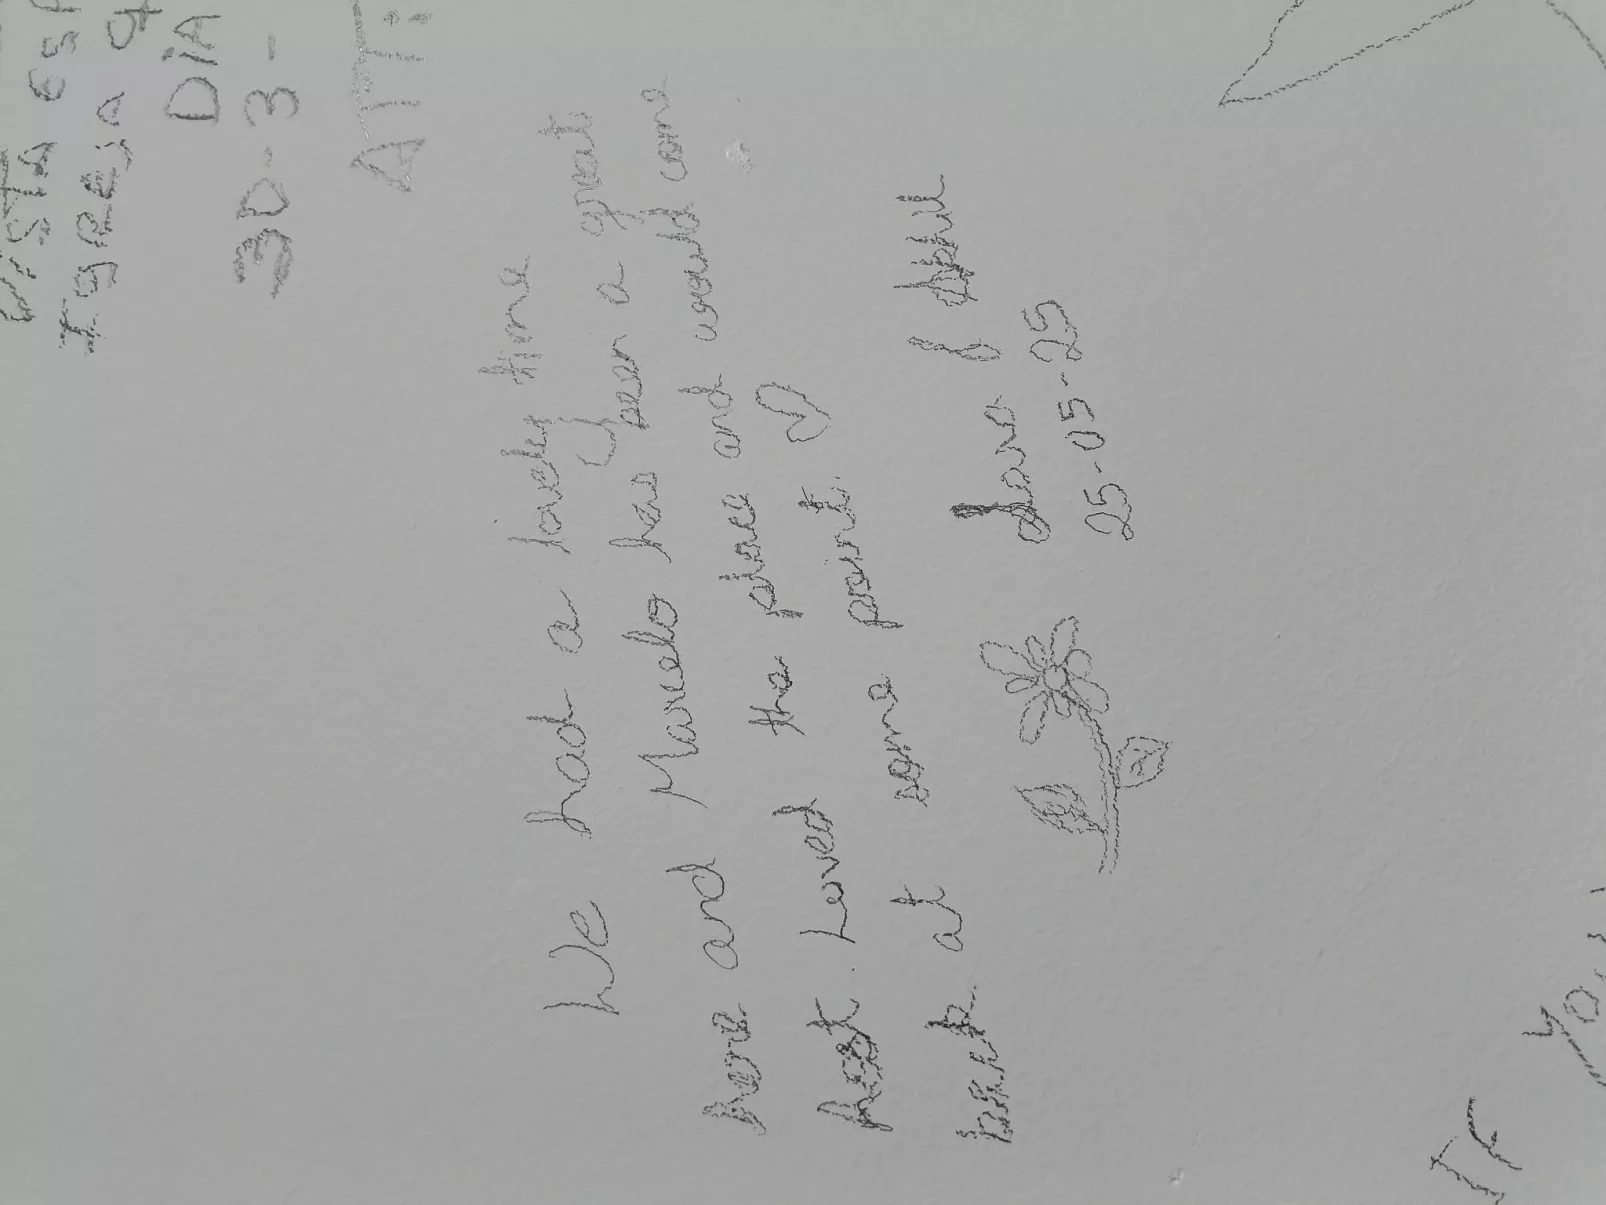 VISTA ESP
IgREjA q
DIA
30-3-
ATT:
We had a lovely time
here and Marcelo has been a great
host. Loved the place and would come
back at some point. ♡
25-05-25
IF